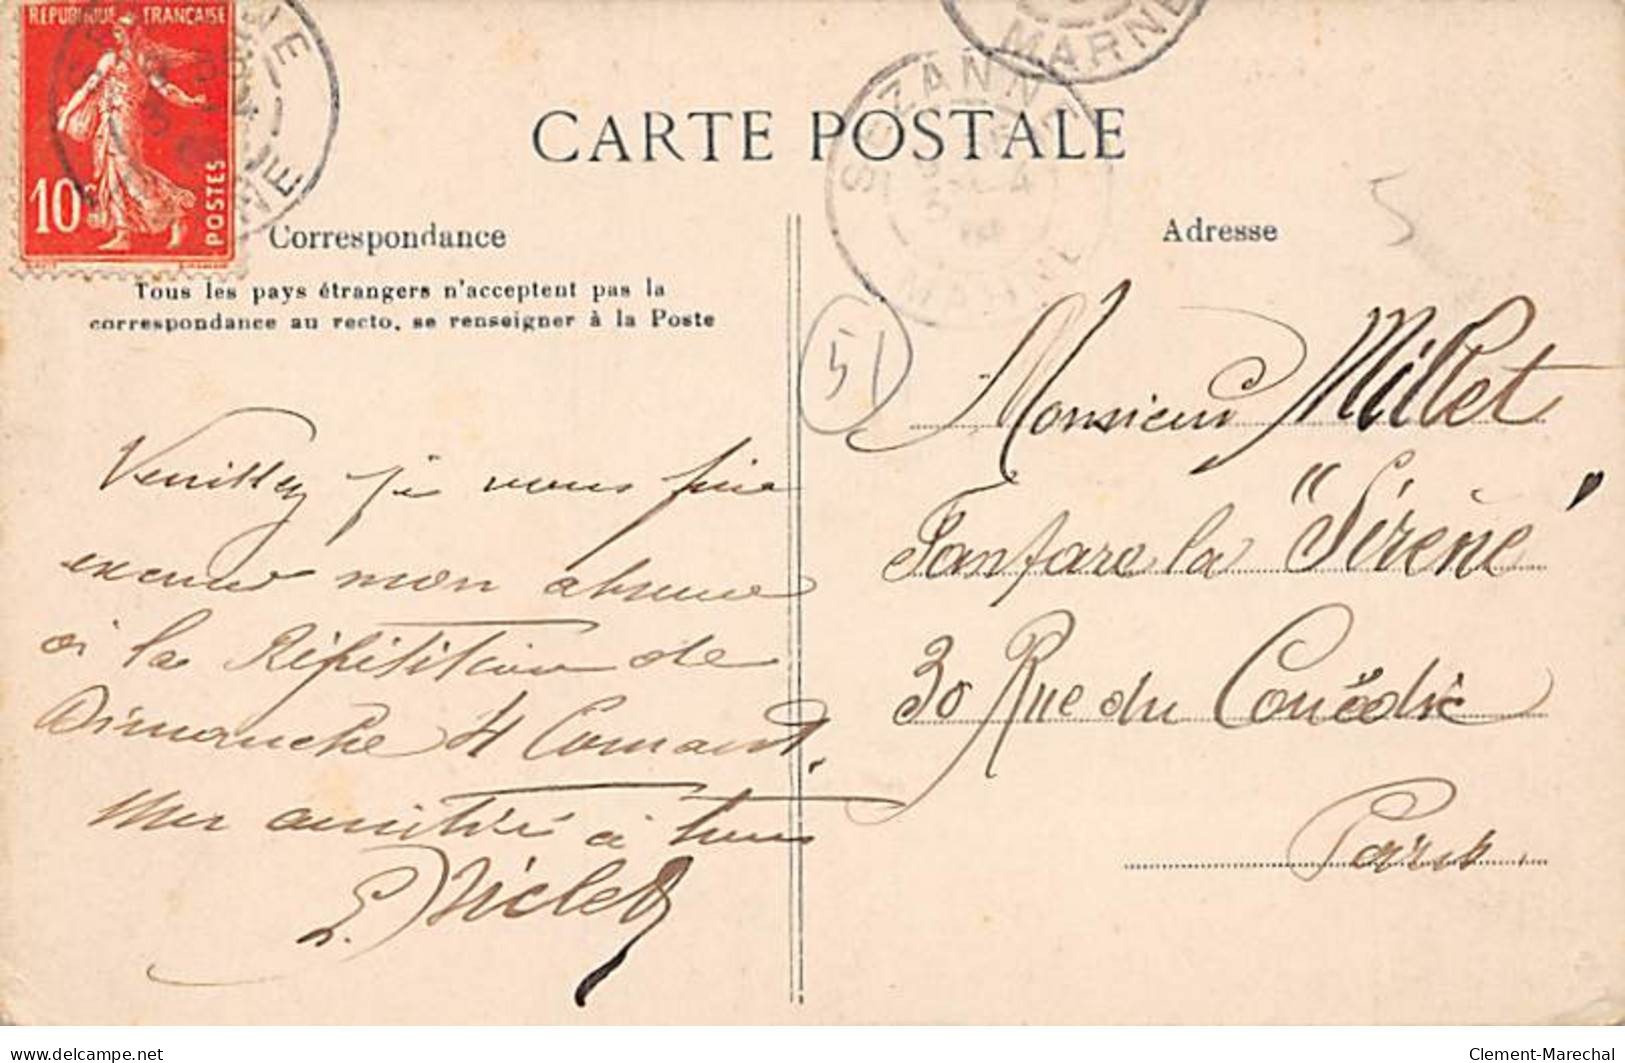 RÉPUBLIQUE FRANÇAISE
10c POSTES
MARNE
SÉZANNE
MARNE
CARTE POSTALE
Correspondance
Tous les pays étrangers n'acceptent pas la
correspondance au recto, se renseigner à la Poste
Veuillez je vous prie
excuser mon absence
à la Répétition de
Dimanche 4 Courant.
Mes amitiés à tous
Adresse
5
51
Monsieur Millet
Fanfare la "Sirène"
30 Rue du Couëdic
Paris.
delcampe.net
Clement-Marechal